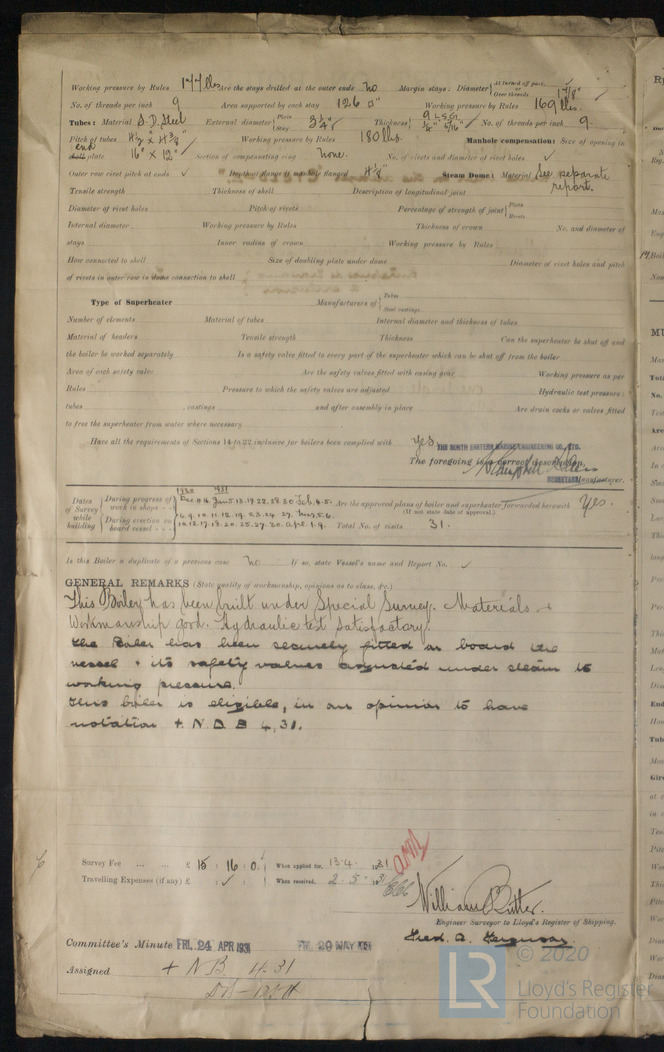 Working pressure by Rules 177 lbs Are the stays drilled at the outer ends No Margin stays: Diameter { At turned off part, or Over threads 1 7/8" ✓
No. of threads per inch 9 Area supported by each stay 126 □" Working pressure by Rules 169 lbs.
Tubes: Material S.D. Steel External diameter { Plain Stay 3¼" ✓ Thickness { 9 L.S.G. ¼" 5/16" ✓ No. of threads per inch 9.
Pitch of tubes 4½" x 4⅜" Working pressure by Rules 180 lbs. Manhole compensation: Size of opening in
end shell plate 16" x 12" Section of compensating ring None. No. of rivets and diameter of rivet holes ✓
Outer row rivet pitch at ends ✓ Depth of flange if manhole flanged Steam Dome: Material See separate report.
Tensile strength Thickness of shell Description of longitudinal joint
Diameter of rivet holes Pitch of rivets Percentage of strength of joint { Plate Rivets
Internal diameter Working pressure by Rules Thickness of crown No. and diameter of
stays Inner radius of crown Working pressure by Rules
How connected to shell Size of doubling plate under dome Diameter of rivet holes and pitch
of rivets in outer row in dome connection to shell
Type of Superheater Manufacturers of { Tubes Steel castings
Number of elements Material of tubes Internal diameter and thickness of tubes
Material of headers Tensile strength Thickness Can the superheater be shut off and
the boiler be worked separately Is a safety valve fitted to every part of the superheater which can be shut off from the boiler
Area of each safety valve Are the safety valves fitted with easing gear Working pressure as per
Rules Pressure to which the safety valves are adjusted Hydraulic test pressure:
tubes castings and after assembly in place Are drain cocks or valves fitted
to free the superheater from water where necessary
Have all the requirements of Sections 14 to 22 inclusive for boilers been complied with Yes
THE NORTH EASTERN MARINE ENGINEERING CO., LTD.
The foregoing is a correct description,
SECRETARY Manufacturer.
Dates of Survey while building { During progress of work in shops - - 1930 Dec. 1931 Jan. 5.13.19.22.28.30 Feb. 4.5.
6.9.10.11.12.19.23.24.27. Mar. 5.6. Are the approved plans of boiler and superheater forwarded herewith Yes.
(If not state date of approval.)
During erection on board vessel - - 10.12.17.18.20.25.27.30. Apl. 1.9. Total No. of visits 31.
Is this Boiler a duplicate of a previous case No If so, state Vessel's name and Report No. ✓
GENERAL REMARKS (State quality of workmanship, opinions as to class, &c.)
This Boiler has been built under Special Survey. Materials +
Workmanship good. Hydraulic test satisfactory.
The Boiler has been securely fitted on board the
vessel + its safety valves adjusted under steam to
working pressure.
This boiler is eligible, in our opinion to have
notation + N.D.B 4,31.
Survey Fee ... ... £ 15 : 16 : 0. When applied for, 13.4. 1931
Travelling Expenses (if any) £ : ✓ : When received, 2.5. 1931
William Rutter.
Engineer Surveyor to Lloyd's Register of Shipping.
Fred. A. Ferguson.
Committee's Minute FRI. 24 APR 1931 FRI. 29 MAY 1931
Assigned + NB 4.31
© 2020
LR Lloyd's Register
Foundation